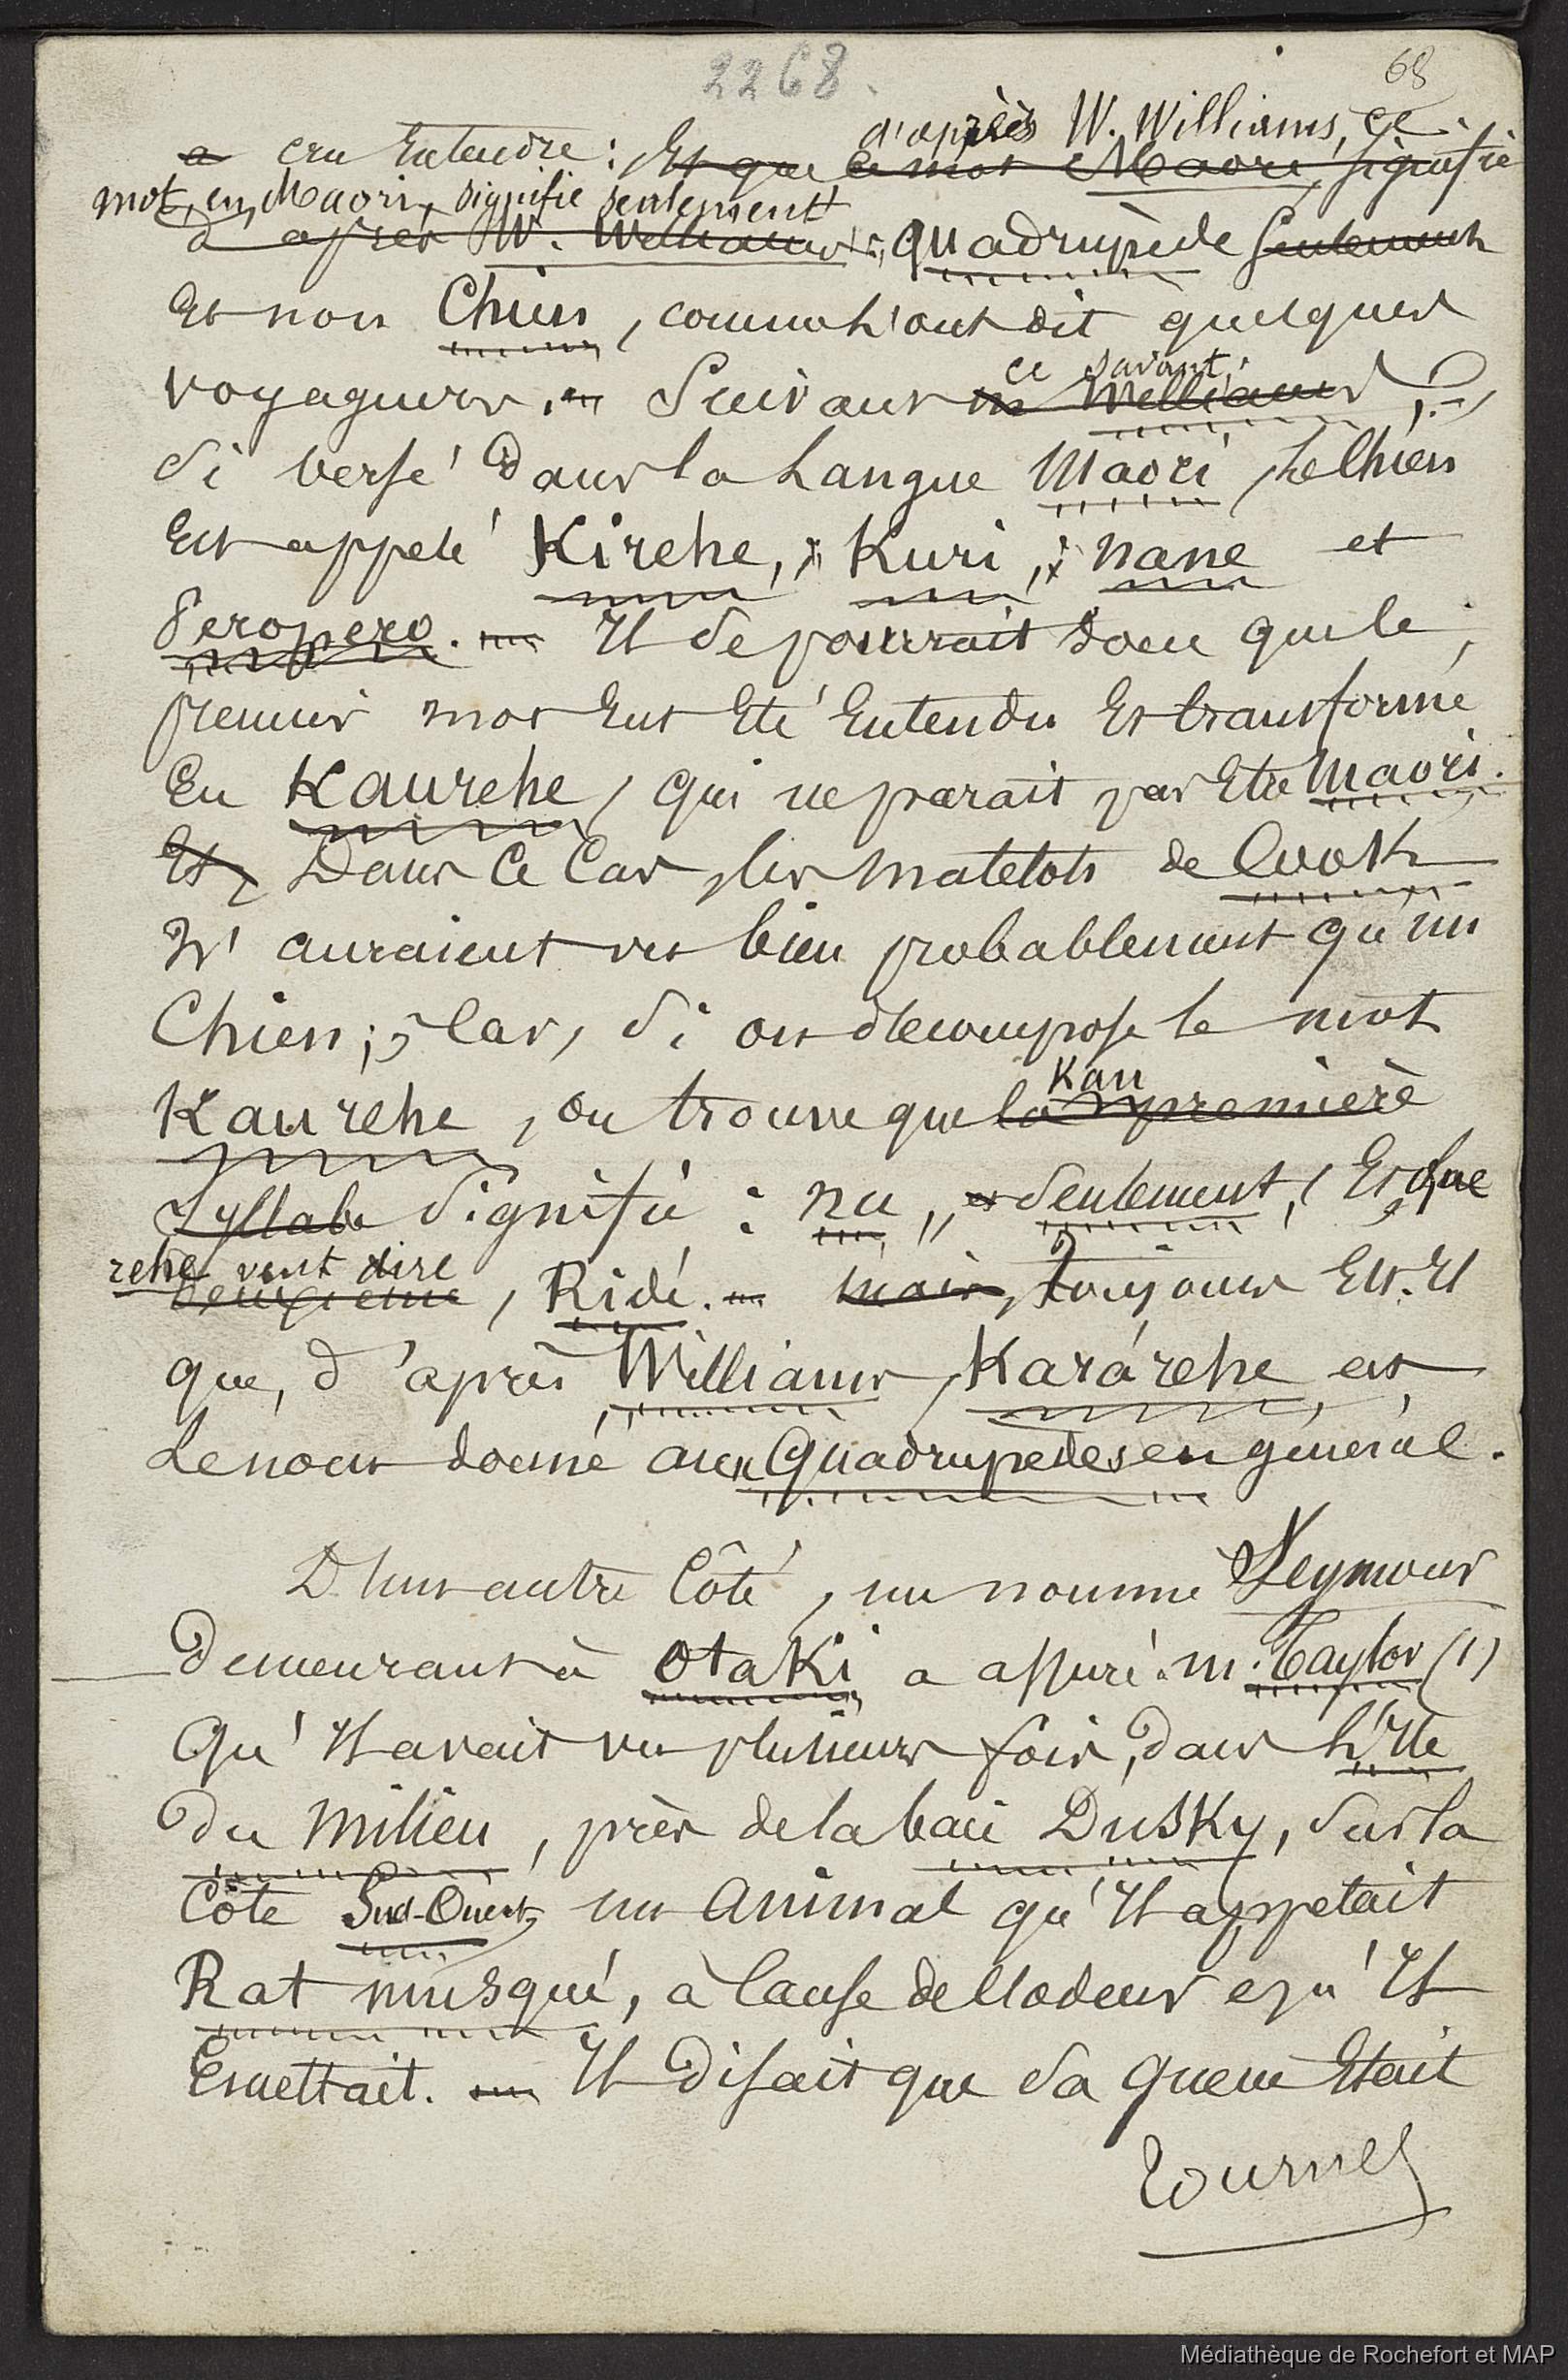 2268.
68
d'après W. Williams, ce
a cru Entendre : Et que ce mot Maori, signifie
mot, en Maori, signifie seulement
d'après W. Williams :, quadrupède seulement
Et non Chien, comme l'ont dit quelques
ce savant,
voyageurs. — Suivant Williams,
si versé dans la Langue Maori, le Chien
Est appelé Kirehe, Kuri, nane et
Peropero. — Il se pourrait donc que le
premier mot Eut Eté Entendu Et transformé
En Kaurehe, qui ne parait pas Etre Maori.
Et, Dans Ce Cas, les Matelots de Cook
N'auraient vu bien probablement qu'un
Chien ; Car, si on décompose le mot
Kau
Kaurehe, on trouve que la première
Syllabe signifie : nu, seulement, Et que
rehe veut dire
deuxième, Ridé. — mais, toujours Est-Il
que, d'après Williams, Karárehe est
Le nom donné aux Quadrupèdes en général.
D'un autre Côté, un nommé Seymour
Demeurant à Otaki a assuré à M. Taylor (1)
Qu'Il avait vu plusieurs fois, dans L'Ile
Du Milieu, près de la baie Dusky, sur la
Côte Sud-Ouest, un Animal qu'Il appelait
Rat musqué, à Cause de l'odeur qu'Il
Emettait. — Il Disait que sa queue Etait
Tournel
Médiathèque de Rochefort et MAP